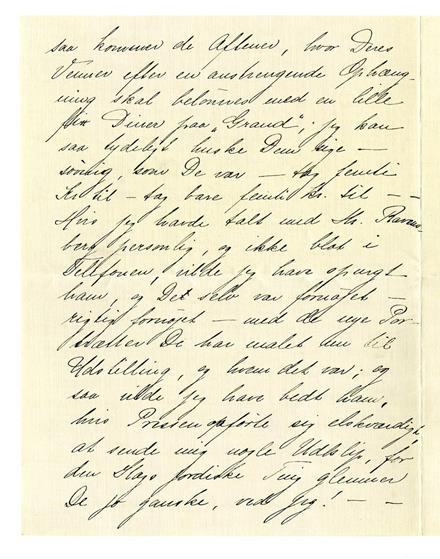 saa kommer de Aftener, hvor Deres
Venner efter en anstrengende Ophæng-
ning skal belönnes med en lille
fin Diner paa „Grand"; jeg kan
saa tydeligt huske Dem sige —
sövnig, som De var — tag femti
Kr. til — tag bare femti kr. til — —
Hvis jeg havde talt med Hr. Ravens-
berg personlig, og ikke blot i
Telefonen, vilde jeg have spurgt
ham, og De selv var fornöjet —
rigtig fornöjet — med de nye Por-
trætter De har malet nu til
Udstilling, og hvem det var; og
saa vilde jeg have bedt ham,
hvis Pressen opförte sig elskværdigt,
at sende mig nogle Udklip, for
den Slags jordiske Ting glemmer
De jo ganske, ved jeg! — —